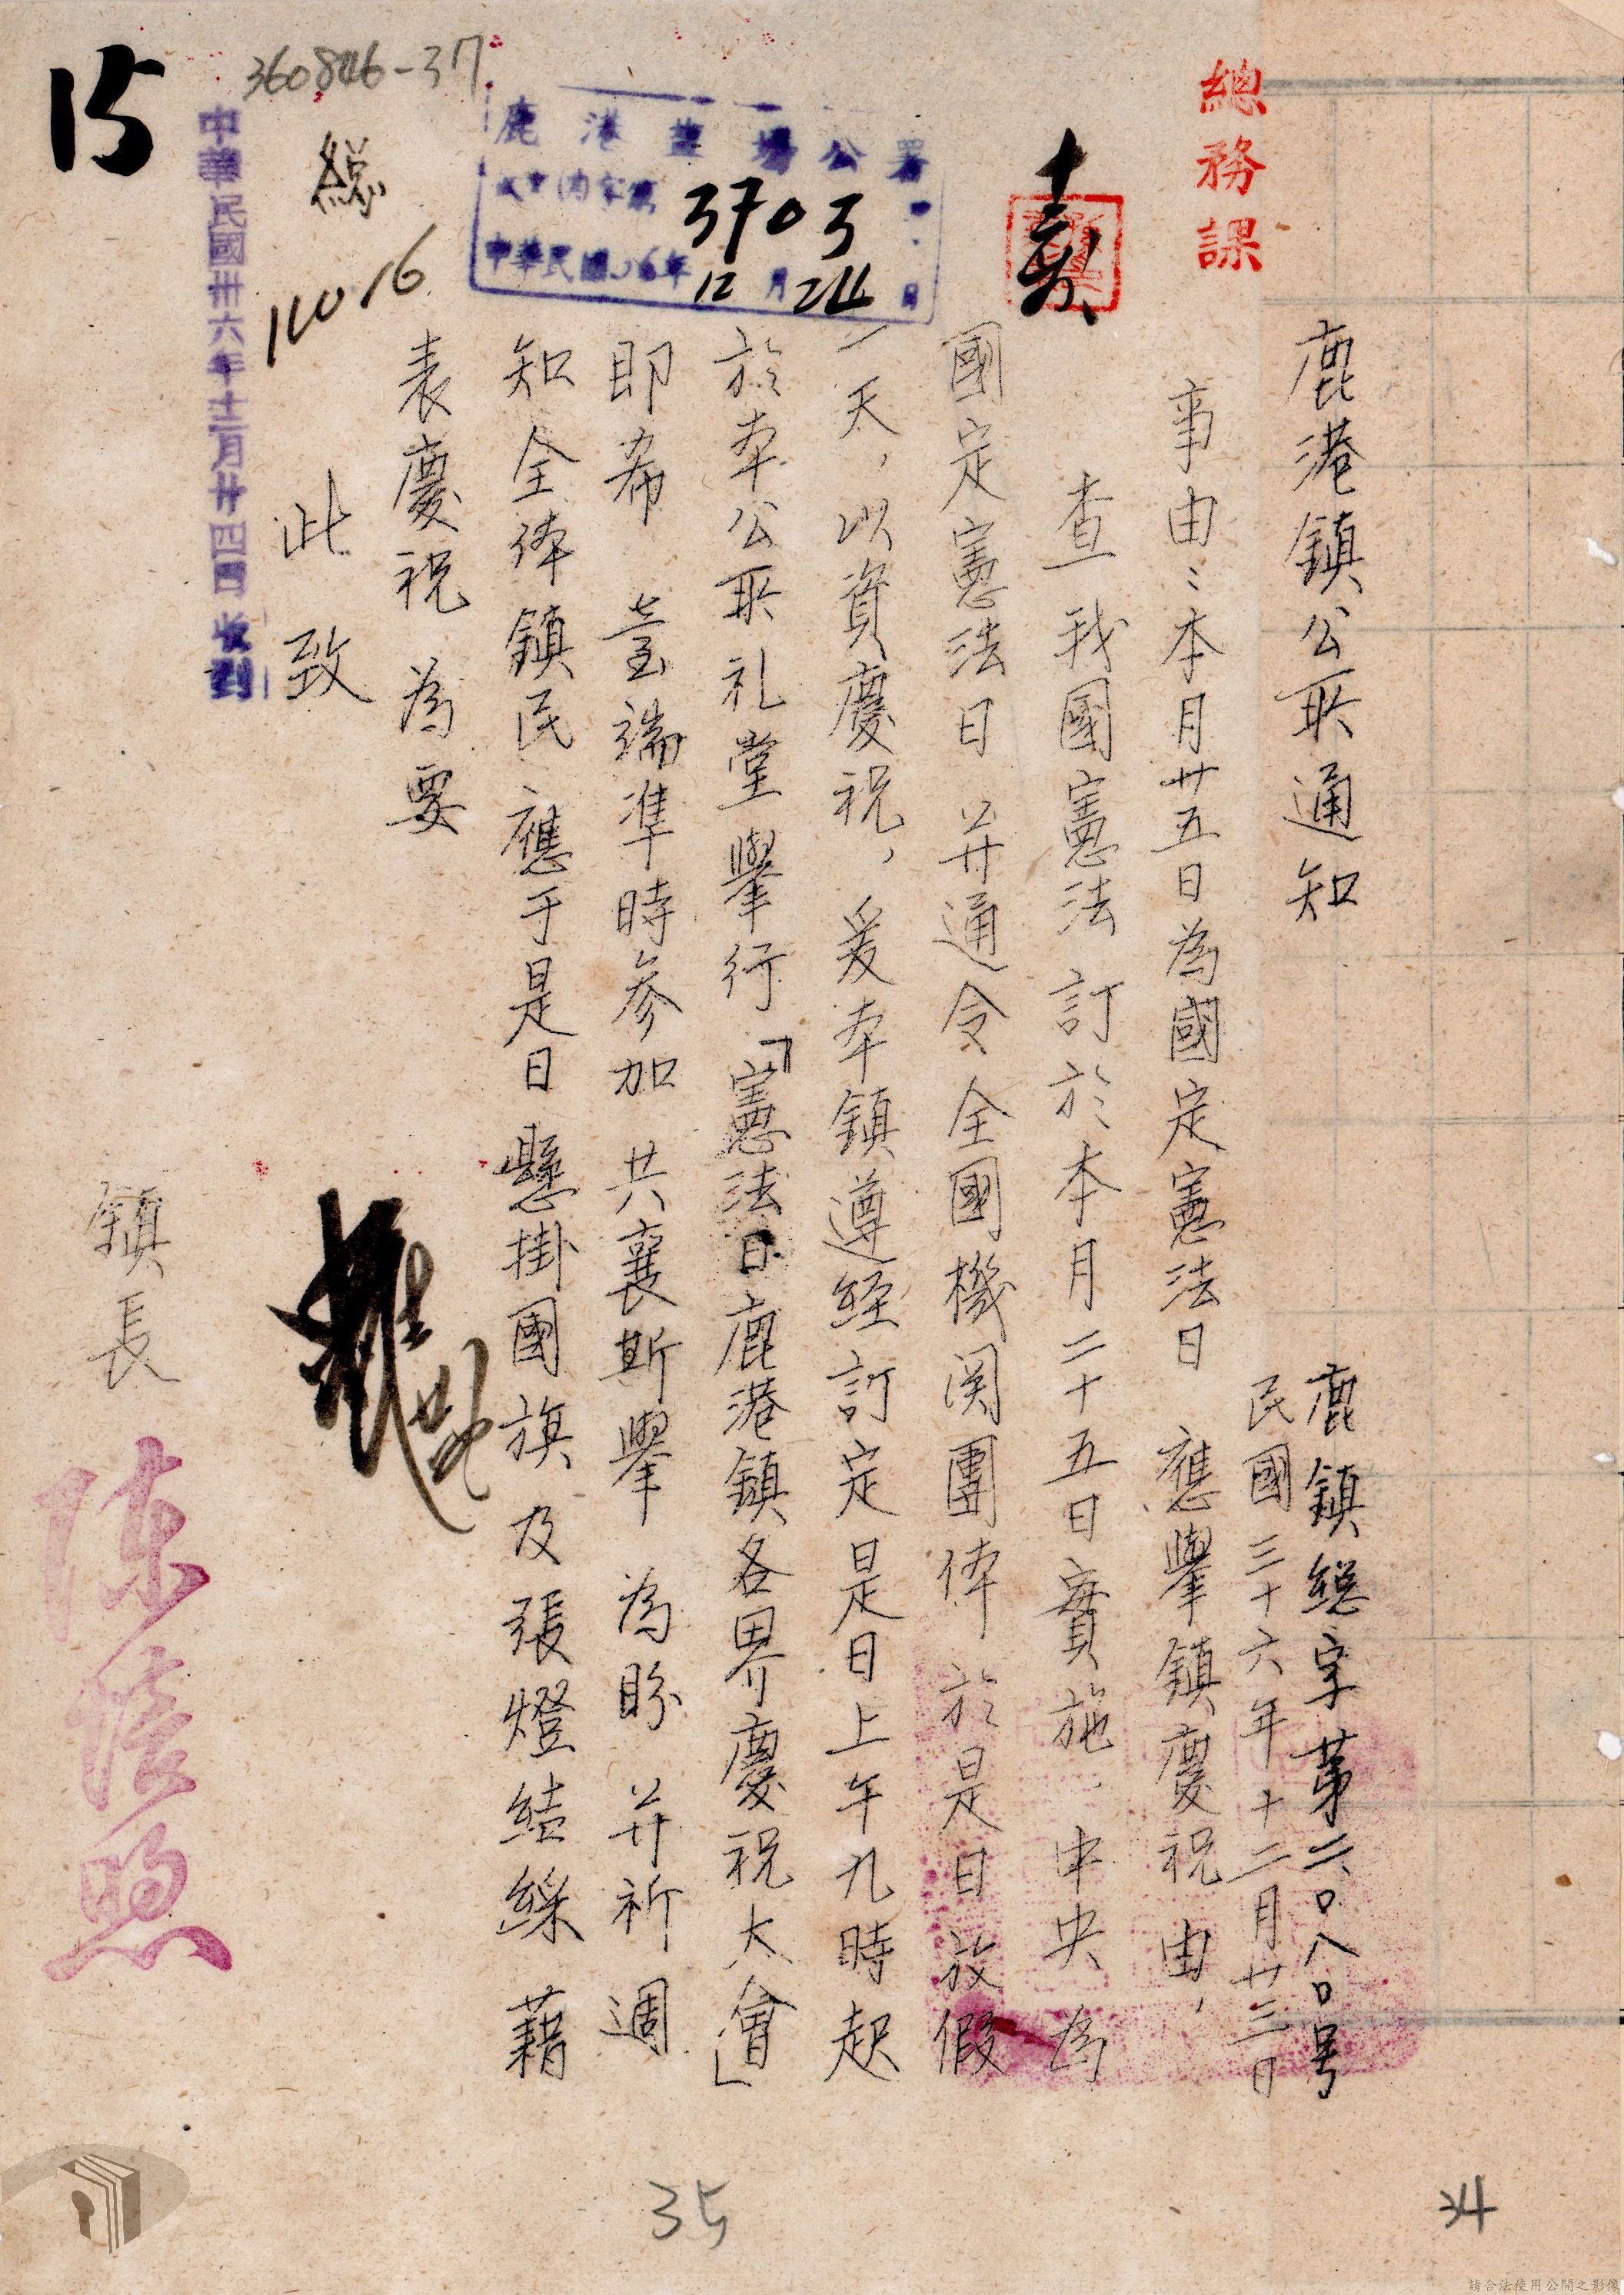 總務課
鹿港鎮公所通知
鹿鎮總字第二〇八〇号
民國三十六年十二月廿三日
事由：本月廿五日為國定憲法日 應舉鎮慶祝由，
查我國憲法訂於本月二十五日實施，中央為
國定憲法日 并通令全國機関團体於是日放假
一天，以資慶祝，爰本鎮遵経訂定是日上午九時起
於本公所礼堂舉行「憲法日鹿港鎮各界慶祝大會」
即希 臺端準時參加 共襄斯舉 為盼 并祈 週
知全体鎮民應于是日懸掛國旗及張燈結綵 藉
表慶祝 為要
此致
鎮長 陳
鹿港鹽場公署
收字第 3703
中華民國36年12月24日
總
中華民國卅六年十二月廿四日收到
360846-37
15
35
34
請合法使用公開之影像